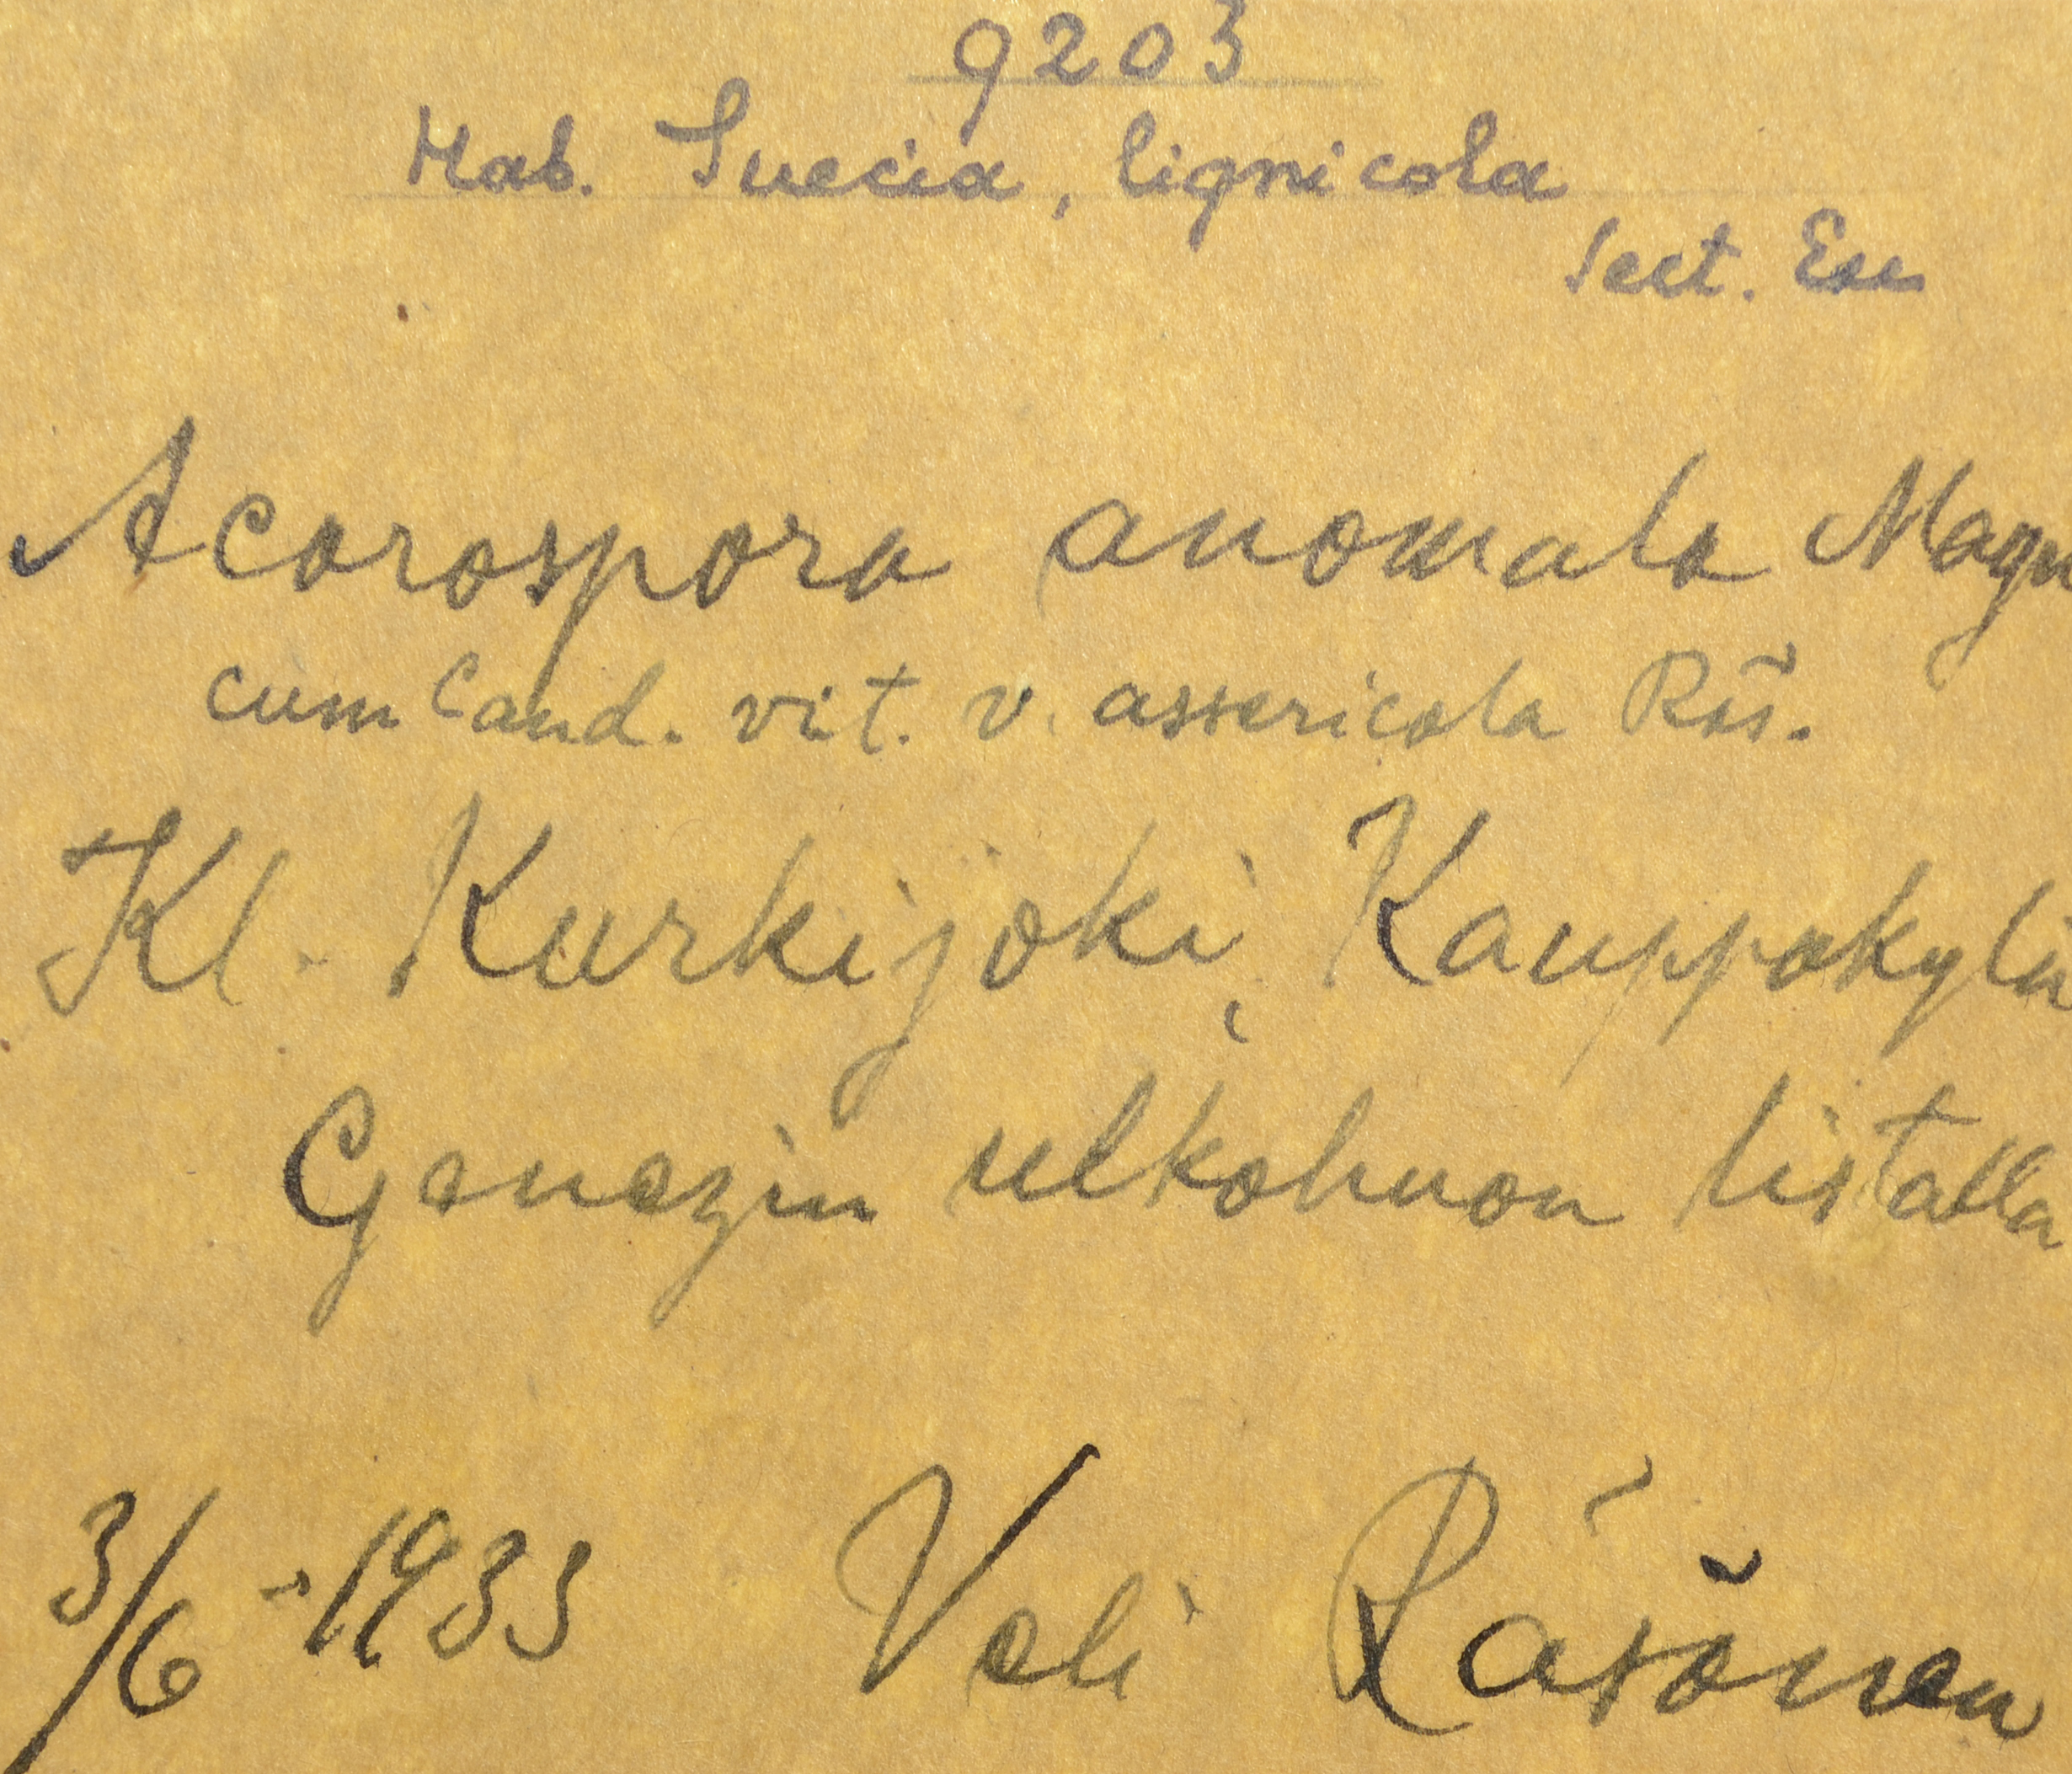 9203
Hab. Suecia, lignicola
Sect. Eu
Acarospora anomala Magn
cum Cand. vit. v. assericola Räs.
Kl. Kurkijoki, Kauppakylä
ulkohuon listalla
3/6 -1933 Veli Räsänen